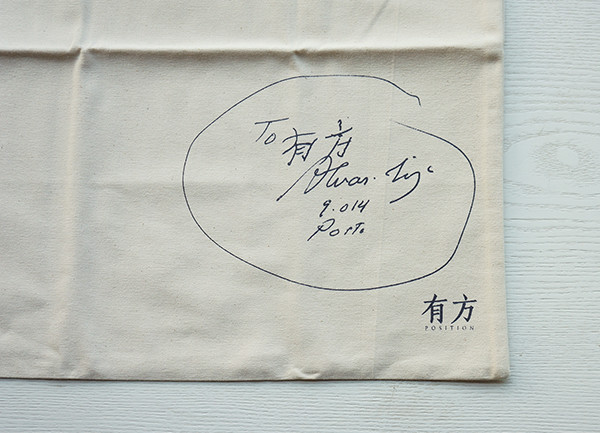 To 有方
Alvaro Siza
9.014
Porto
有方
POSITION